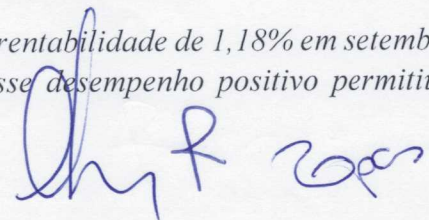 rentabilidade de 1,18% em setemb
sse desempenho positivo permitit